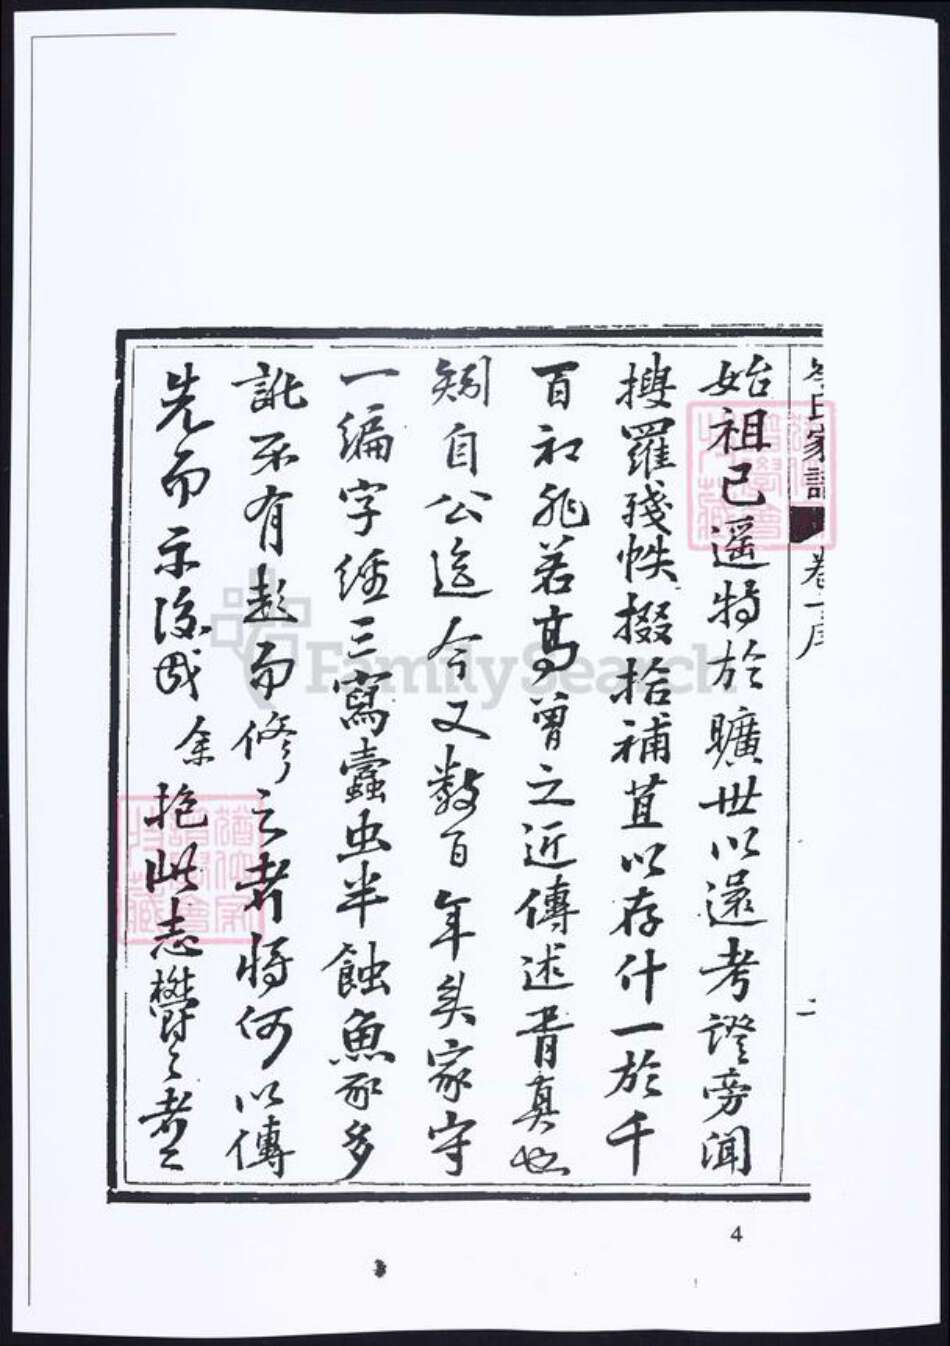 氏家譜 卷一序
始祖已遥特於曠世以還考證旁聞
搜羅殘帙掇拾補苴以存什一於千
百初非若高曾之近傳述胥真也
矧自公迄今又數百年矣家守
一編字經三寫蠹虫半蝕魚豕多
訛不有起而修之者將何以傳
先而示後哉余抱此志欝之者
4
FamilySearch